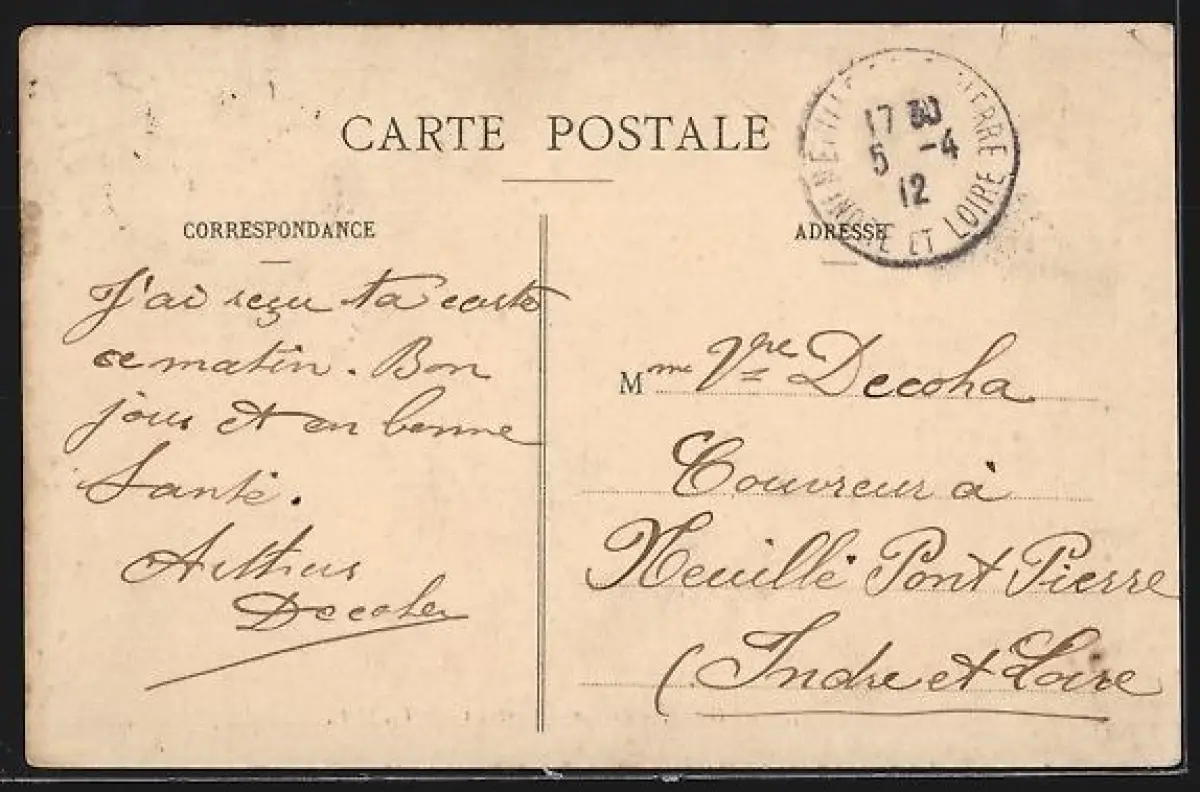 CARTE POSTALE
17 30
5 -4
12
PIERRE
INDRE ET LOIRE
CORRESPONDANCE
ADRESSE
J'ai reçu ta carte
ce matin. Bon
jour et en bonne
Santé.
Arthur
Decoha
Mme Vve Decoha
Couvreur à
Neuillé Pont Pierre
(Indre et Loire